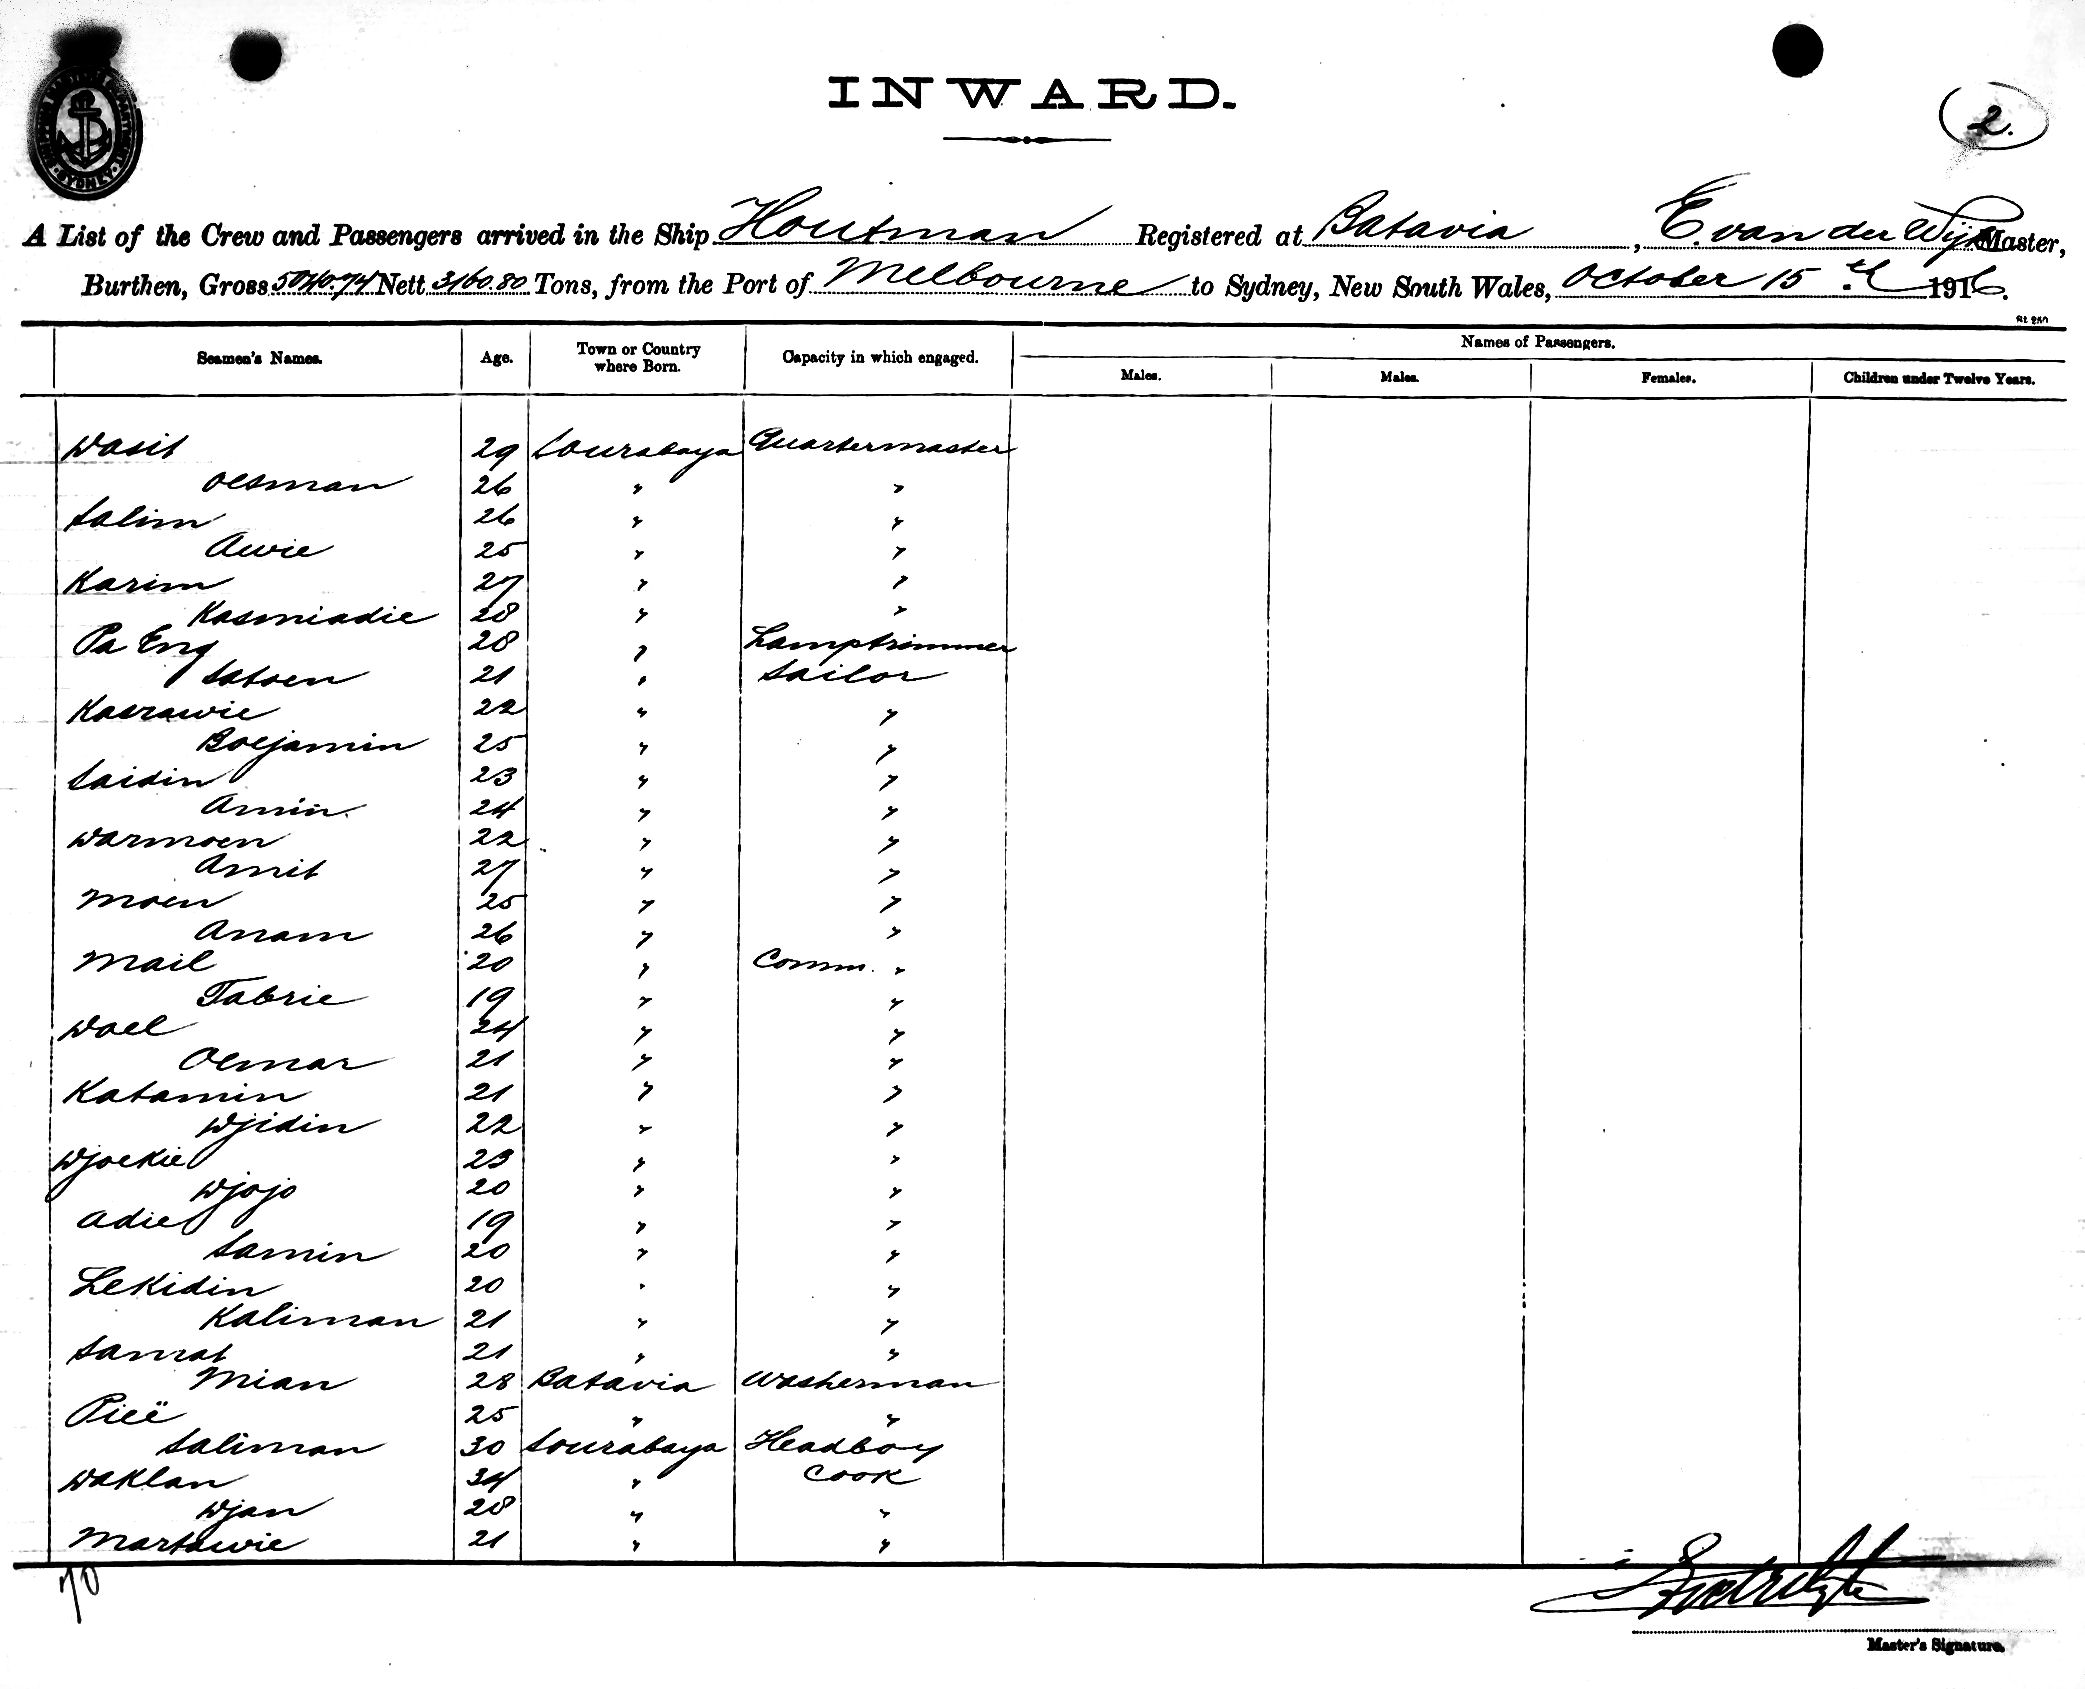 SHIPPING MASTER'S DEPARTMENT SYDNEY
INWARD.
2.
A List of the Crew and Passengers arrived in the Ship Houtman Registered at Batavia, E. van der Wijk Master,
Burthen, Gross 5040.74 Nett 3160.80 Tons, from the Port of Melbourne to Sydney, New South Wales, October 15th 1916.
Seamen's Names. Age. Town or Country where Born. Capacity in which engaged. Names of Passengers.
Males. Males. Females. Children under Twelve Years.
Wasit 29 Sourabaya Quartermaster
Oesman 26 " "
Salim 26 " "
Awie 25 " "
Karim 27 " "
Kasmiadie 28 " "
Pa Eng 28 " Lamptrimmer
Satoen 21 " Sailor
Kasrawie 22 " "
Boejamin 25 " "
Saidin 23 " "
Amin 24 " "
Warmoen 22 " "
Amit 27 " "
Moen 25 " "
Anam 26 " "
Mail 20 " Comm. "
Tabrie 19 " "
Wael 24 " "
Oemar 21 " "
Katamin 21 " "
Wjidin 22 " "
Wjoekie 23 " "
Wjojo 20 " "
Adie 19 " "
Samin 20 " "
Lekidin 20 " "
Kaliman 21 " "
Samat 21 " "
Mian 28 Batavia Washerman
Pieë 25 " "
Saliman 30 Sourabaya Headboy
Waklan 34 " Cook
Wjan 28 " "
Martawie 21 " "
70
Master's Signature.